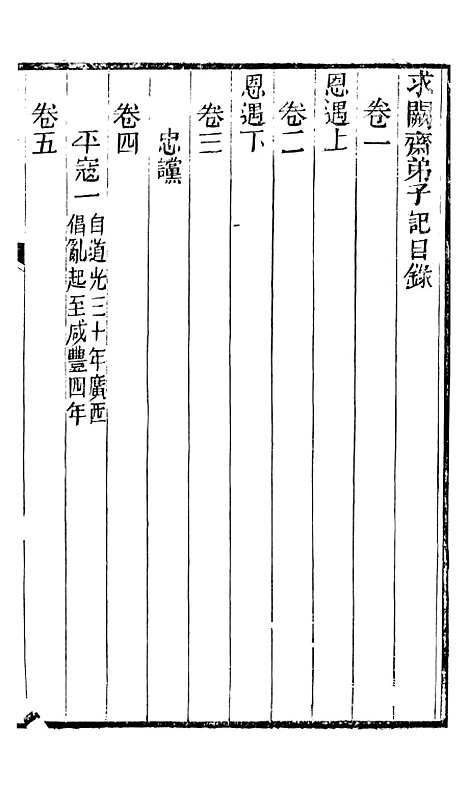 求闕齋弟子記目錄
卷一
恩遇上
卷二
恩遇下
卷三
忠讜
卷四
平寇一
自道光三十年廣西
倡亂起至咸豐四年
卷五